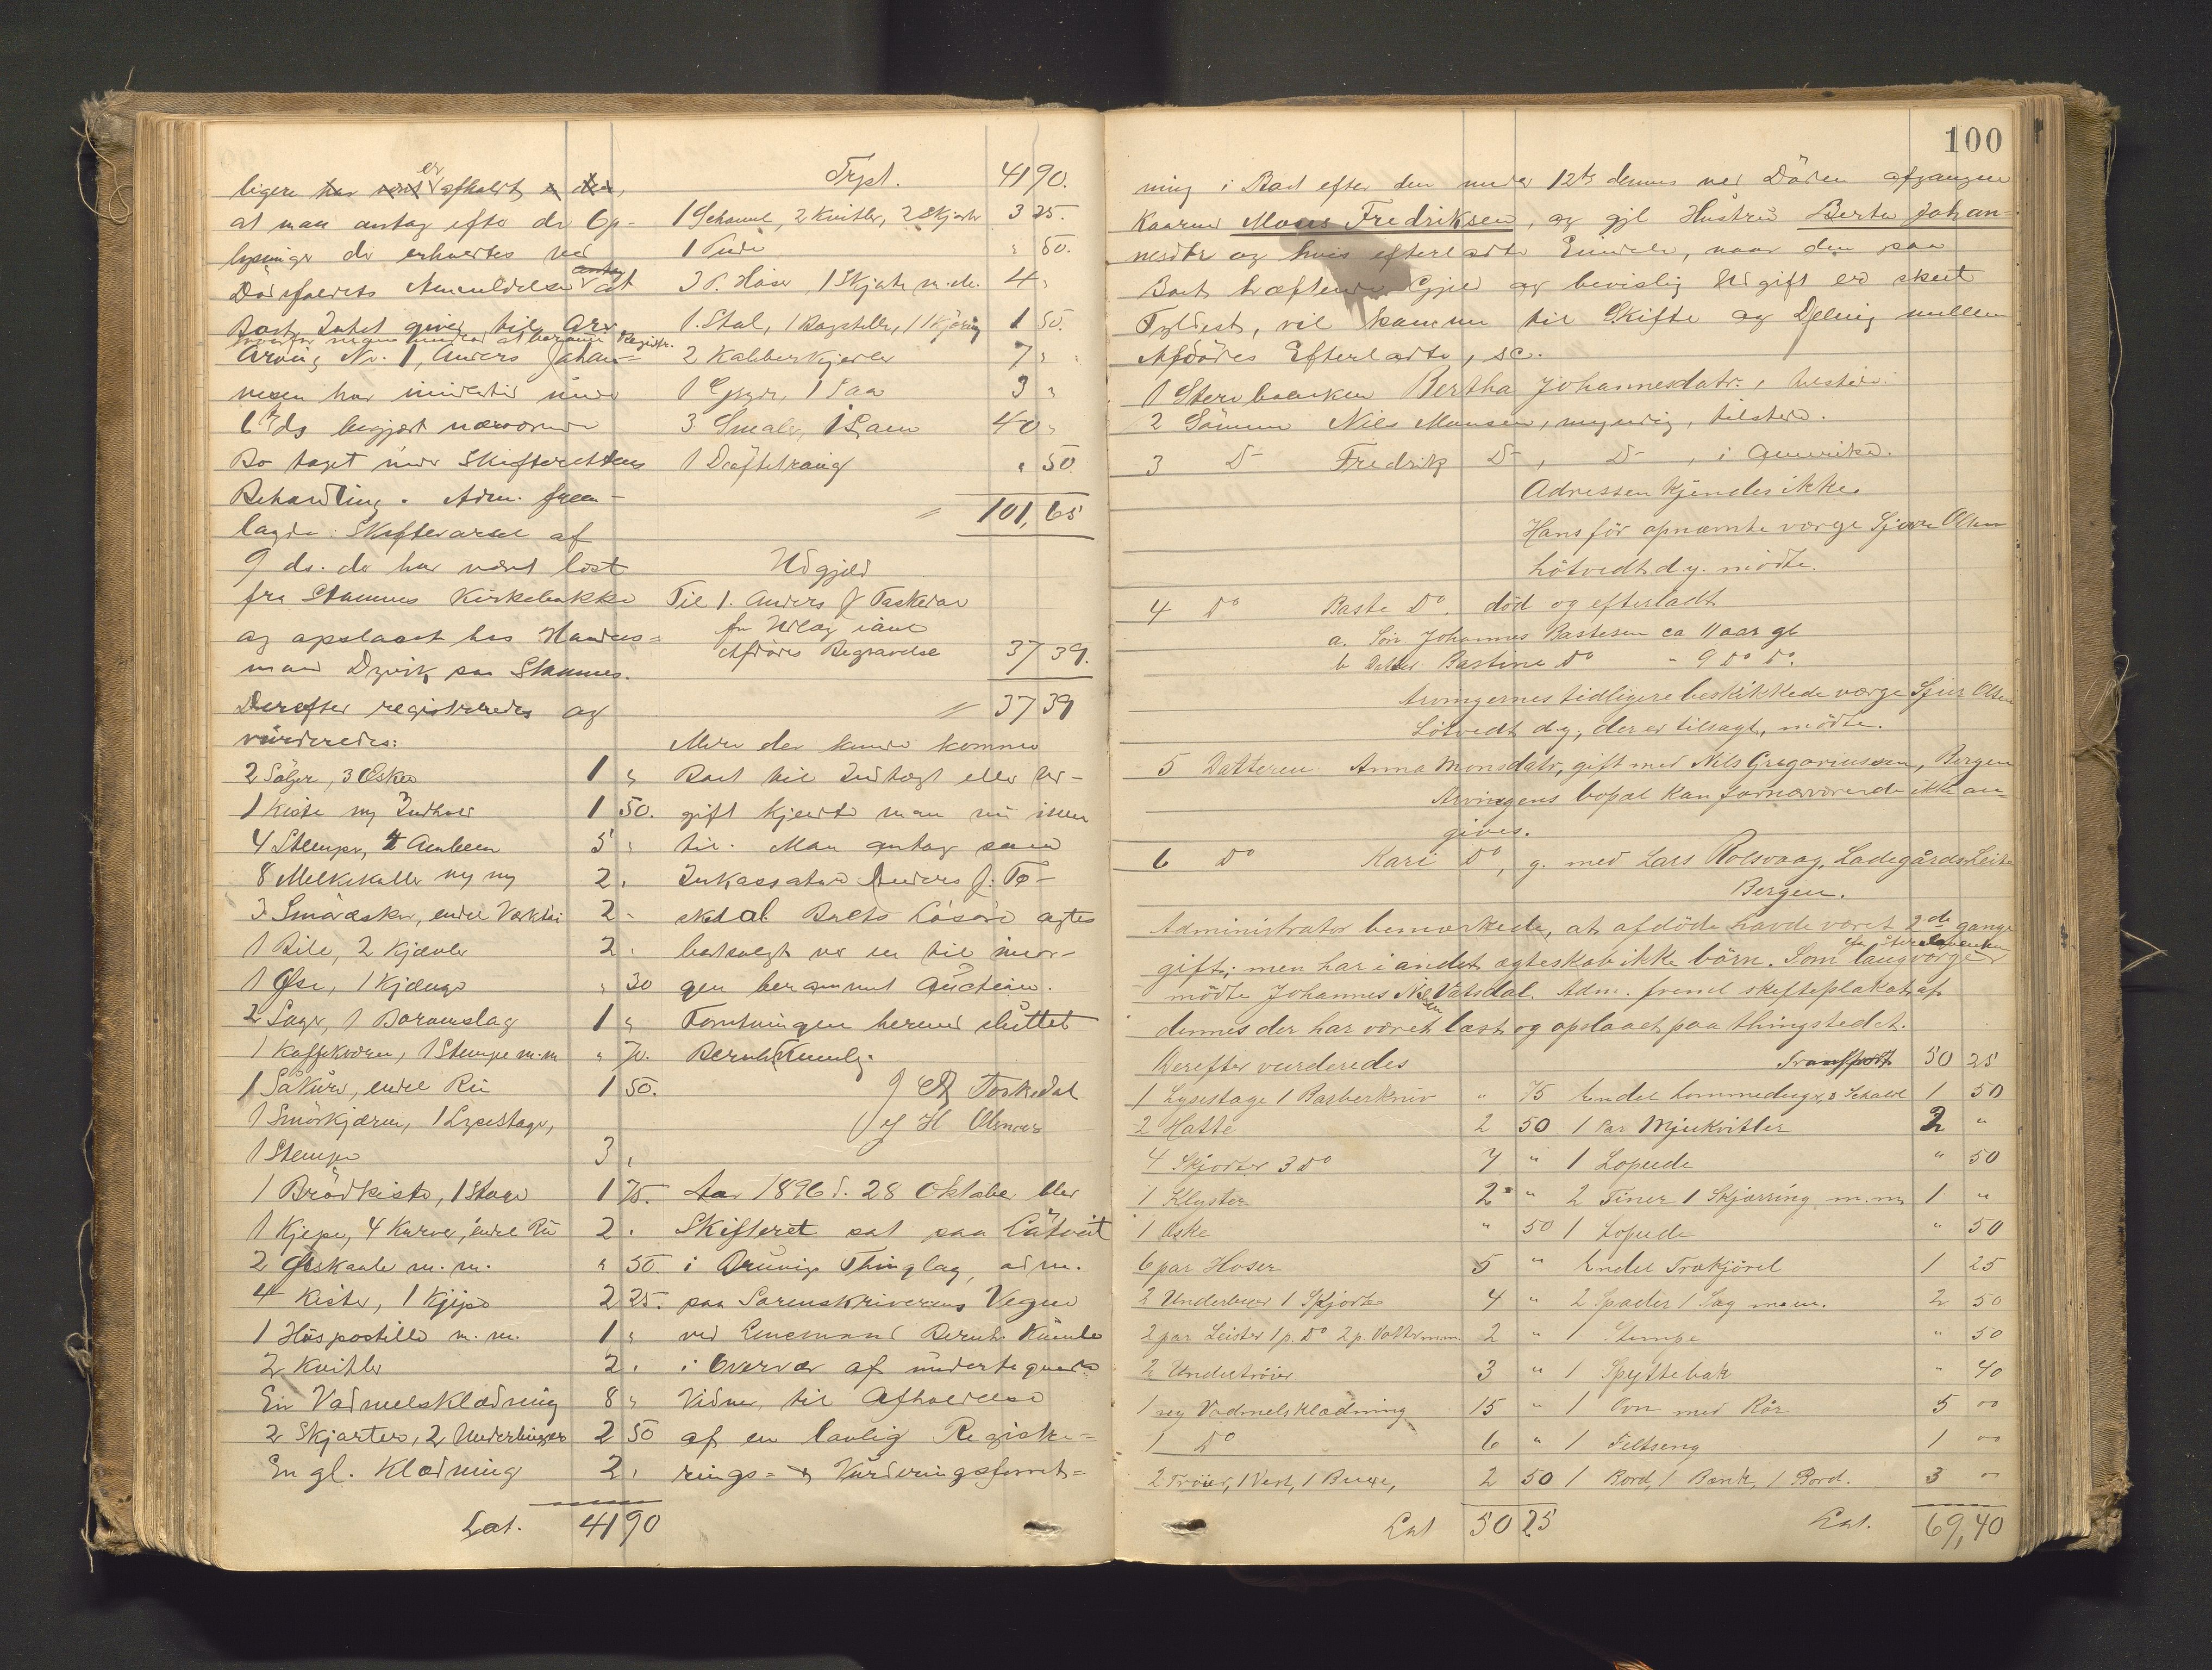 ligere har været er afholdt,
at man antog efter de Op-
lysninger der erhvertes ved
Dödsfaldets Anmeldelse antog at
Boet Intet giver til Arv
hvorfor ingen
Arving Nr. 1, Anders Johan-
nesen har imidlertid under
6te ds begjært nærværende
Bo taget under Skifterettens
Behandling. Adm. frem-
lagde Skiftevarsel af
9 ds. der har været læst
fra Stamnes Kirkebakke
og opslaaet hos Handels-
mand Dyvik paa Stamnes.
Derefter registreredes og
vurderedes:
2 Söljer, 3 Æsker 1 "
1 Kiste m Indhold 1 50.
4 Stamper, 4 Ambern 5 "
8 Melkekoller m m 2 "
3 Smaaæsker, endel Værktöi 2 "
1 Bile, 2 Kjævler 2 "
1 Øse, 1 Kjænge " 30
2 Sager, 1 Boramslag 1 "
1 Kaffekværn, 1 Stampe m.m " 70.
1 Såkurv, endel Ru 1 50.
1 Smörkjærne, 1 Lysestage,
1 Stampe 3 "
1 Brödkiste, 1 Stage 1 75.
1 Kjepe, 4 Kurve, endel Ru 2 "
2 Ølskaale m. m. " 50.
4 Kister, 1 Kjipe 2 25.
1 Huspostille m. m. 1 "
2 Kvitler 2 "
En Vadmelsklædning 8 "
2 Skjorter, 2 Underbuxer 2 50
En gl. Klædning 2 "
Lat. 41 90
Trpt. 41 90.
1 Schawl, 2 Kvitler, 2 Skjorter 3 25.
1 Pude " 50.
3 P. Hoser, 1 Skjorte m. m. 4 "
1 Stol, 1 Bogehylle, 1 Skjæring 1 50.
2 Kobberkjedler 7 "
1 Gryde, 1 Saa 3 "
3 Smaler, 1 Lam 40 "
1 Dröftetraug " 50.
" 101,65
Udgjæld
Til 1. Anders J Taskedal
for Udlæg i anl
Afdödes Begravelse 37 39.
" 37 39
Mere der kunde komme
Boet til Indtægt eller Ud-
gift kjendte man nu ikke
til. Man antog som
Inkassator Anders J. Ta-
skedal. Boets Lösöre agtes
bortsolgt ved en til imor-
gen berammet Auction.
Forretningen hermed sluttet
Bernh Kumle.
J A Taskedal
H Olsnes
Aar 1896 d. 28 Oktober blev
Skifteret sat paa Låtveit
i Bruvig Thinglag, adm.
paa Sorenskriverens Vegne
ved Lensmand Bernh. Kumle
i Overvær af undertegnede
Vidner, til Afholdelse
af en lovlig Registre-
rings- & Vurderingsforret-
100
ning i Boet efter den under 12te dennes ved Döden afgangne
Kaarmd Mons Fredriksen, og gjl Hustru Berta Johan-
nesdtr og hvis efterladte Eiendele, naar den paa
Boet hæftende Gjæld og bevislig Udgift er skeet
Fyldest, vil komme til Skifte og Deling mellem
Afdödes Efterladte, sc.
1 Stervboenken Bertha Johannesdatr., tilstede.
2 Sönnen Nils Monsen, myndig, tilstede.
3 D- Fredrik D-, D-, i Amerika.
Adressen kjendes ikke.
Hans för opnævnte værge Sjur Olsen
Lötvedt d.y. mödte.
4 Do Baste Do. död og efterladt
a. Sön Johannes Bastesen ca 11 aar gl
b Datter Bastine Do " 9 Do Do.
Arvingernes tidligere beskikkede værge Sjur Olsen
Lötvedt d.y, der er tilsagt, mödte.
5 Datteren Anna Monsdatr, gift med Nils Gregoriussen, Bergen
Arvingens bopæl kan fornærværende ikke an-
gives.
6 Do Kari Do, g. med Lars Rolsvaag, Ladegårds
Bergen.
Administrator bemærkede, at afdöde havde været 2de gange
gift; men har i andet ægteskab ikke börn. Som for Stervboenken laugværge
mödte Johannes Nilsen Vatsdal. Adm. freml skifteplakat af
dennes der har været læst og opslaaet paa thingstedet.
Derefter vurderedes Transport 50 25
1 Lysestage 1 Barberkniv " 75 Endel Lommeduger, 3 Schawl 1 50
2 Hatte 2 50 1 Par Mjukvitler 2 "
4 Skjorter 3 Do 7 " 1 Lopude " 50
1 Klyster 2 " 2 Tiner 1 Skjærring m.m. 1 "
1 Æske " 50 1 Lopude " 50
6 par Hoser 5 " Endel Trækjörel 1 25
2 Underbuxer 1 Skjorte 4 " 2 Spader 1 Sag m.m. 2 50
2 par Leister 1 p. Do 2 p. Votter m.m. 2 " 1 Stampe " 50
2 Undertröier 3 " 1 Spyttebak " 40
1 ny Vadmelsklædning 15 " 1 Ovn med Rör 5 "
1 Do 6 " 1 Feltseng 1 "
2 Tröier, 1 Vest, 1 Buxe, 2 50 1 Bord, 1 Bænk, 1 Bord. 3 "
Lat 50 25 Lat. 69,40